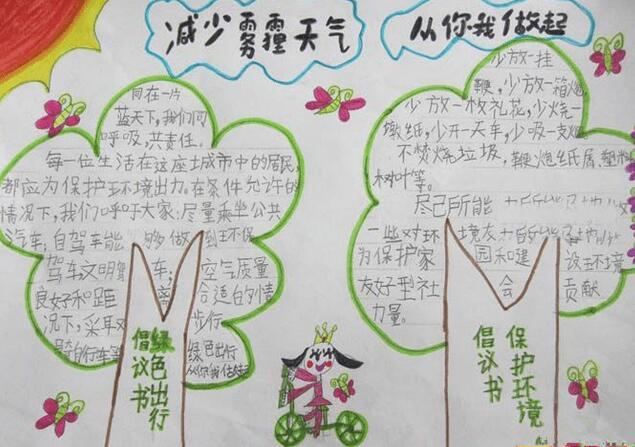 减少雾霾天气
从你我做起
同在一片
蓝天下,我们同
呼吸,共责任。
每一位生活在这座城市中的居民,
都应为保护环境出力。在条件允许的
情况下,我们呼吁大家:尽量乘坐公共
汽车;自驾车能够做到环保
驾车文明驾车;空气质量
良好和距离合适的情
况下,采取步行
骑自行车等绿色出行
从你我做起
绿色出行
倡议书
少放一挂
鞭,少放一箱炮
少放一枚礼花,少烧一
墩纸,少开一天车,少吸一支烟
不焚烧垃圾,鞭炮纸屑,塑料
树叶等。
尽己所能
一些对环境友
为保护家园和建设环境
友好型社会贡献
力量。
保护环境
倡议书